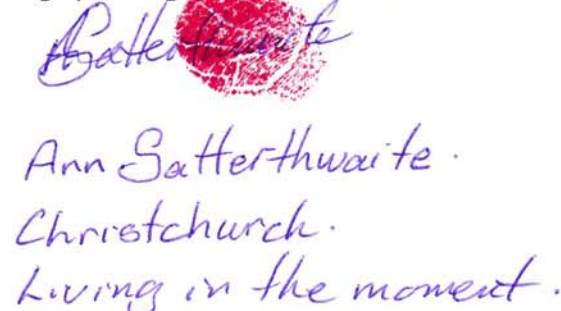 ASatterthwaite
Ann Satterthwaite.
Christchurch.
Living in the moment.